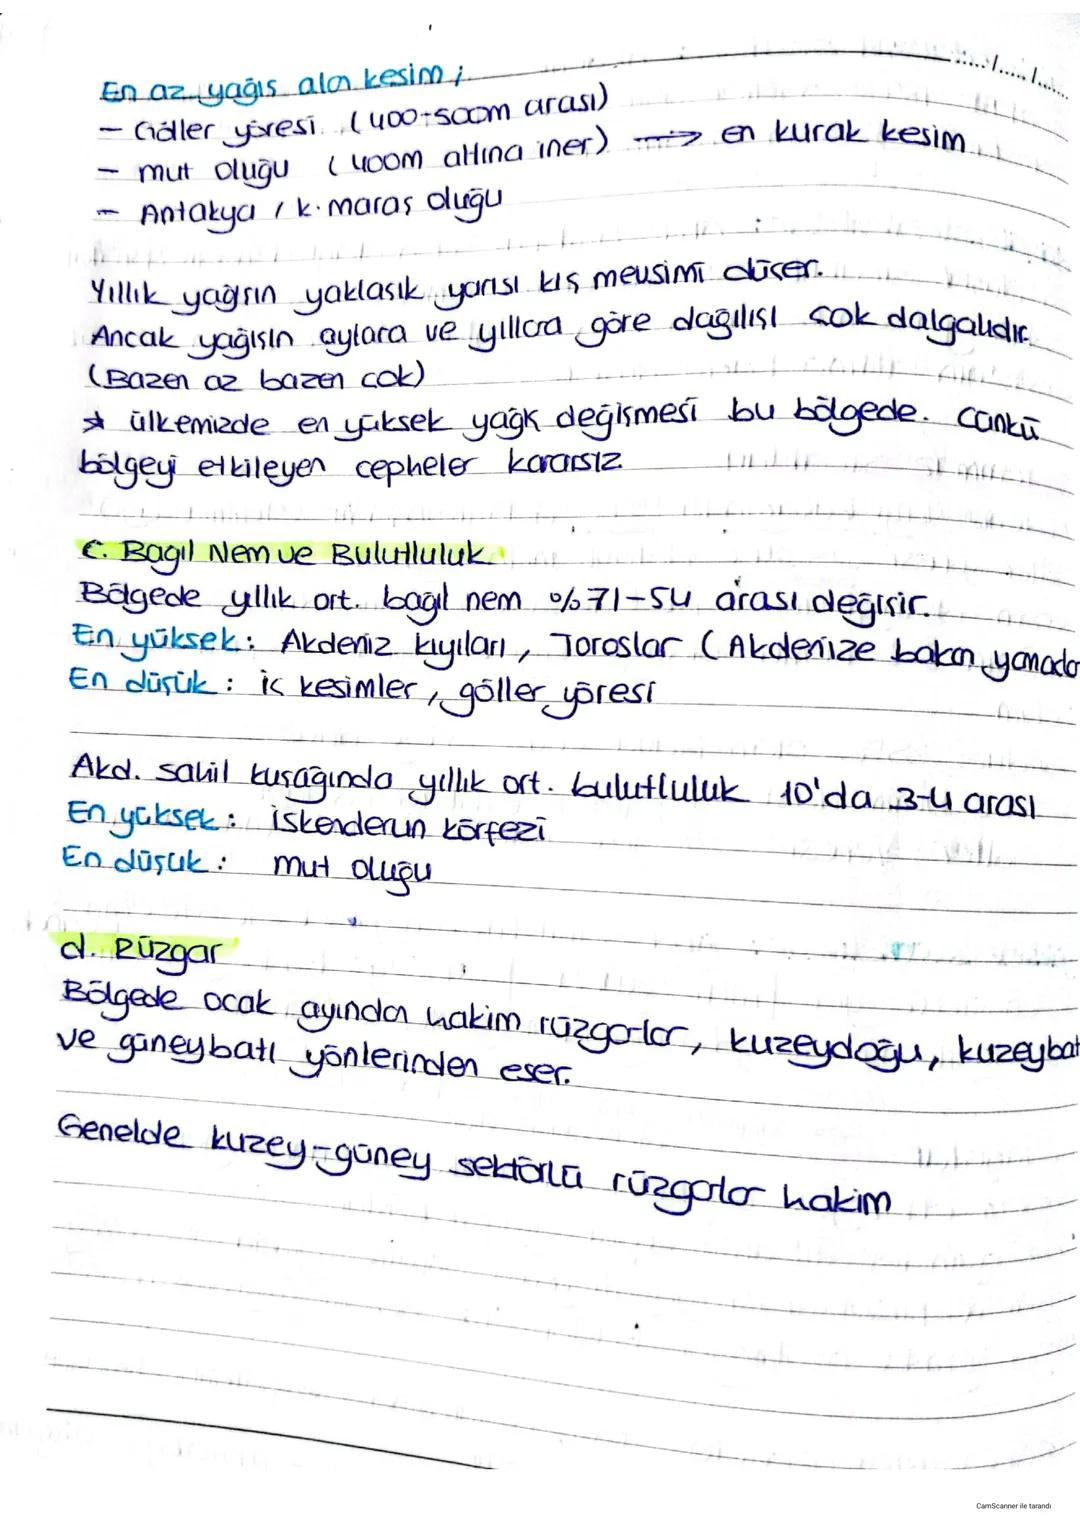 En az yağış alan kesim ;
– Göller yöresi (400-500m arası)
– mut oluğu (400m altına iner) → en kurak kesim
– Antakya / k.maraş oluğu
Yıllık yağışın yaklaşık yarısı kış mevsimi düşer.
Ancak yağışın aylara ve yıllara göre dağılışı çok dalgalıdır.
(Bazen az bazen çok)
* ülkemizde en yüksek yağış değişmesi bu bölgede. çünkü
bölgeyi etkileyen cepheler kararsız.
c. Bağıl Nem ve Bulutluluk
Bölgede yıllık ort. bağıl nem %71-54 arası değişir.
En yüksek: Akdeniz kıyıları, Toroslar (Akdenize bakan yamaçlar
En düşük : iç kesimler, göller yöresi
Akd. sahil kuşağında yıllık ort. bulutluluk 10'da 3-4 arası
En yüksek : iskenderun körfezi
En düşük : mut oluğu
d. Rüzgar
Bölgede ocak ayında hakim rüzgarlar, kuzeydoğu, kuzeybat
ve güneybatı yönlerinden eser.
Genelde kuzey-güney sektörlü rüzgarlar hakim
CamScanner ile tarandı